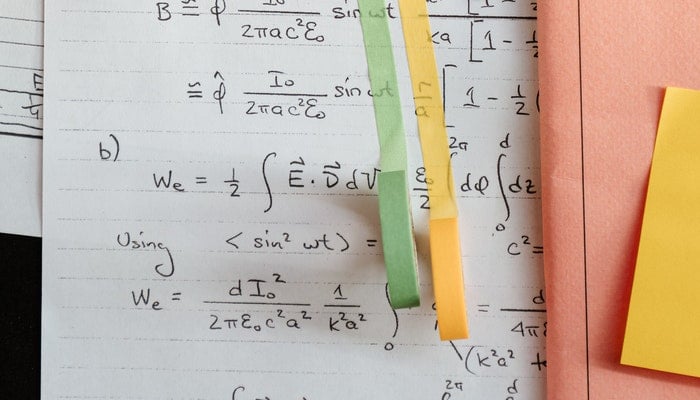 B ≅ φ̂ I₀ / 2πac²ε₀ sin ωt / ka [1 - 1/2
≅ φ̂ I₀ / 2πac²ε₀ sin ωt [1 - 1/2 (
b) We = 1/2 ∫ E⃗ · D⃗ dV ε₀/2 ∫ 2π dφ ∫ 0 d dz
Using < sin² ωt > = c² =
We = d I₀² / 2πε₀c²a² 1 / k²a² ∫ 0 = d / 4πε
(k²a² +
∫ 2π d